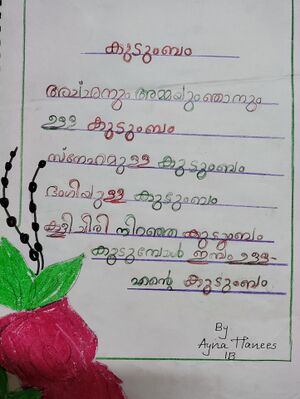 കുടുംബം
അച്ഛനും അമ്മയും ഞാനും
ഉള്ള കുടുംബം
സ്നേഹമുള്ള കുടുംബം
ഭംഗിയുള്ള കുടുംബം
കളിചിരി നിറഞ്ഞ കുടുംബം
കൂടുമ്പോൾ ഇമ്പം ഉള്ള-
എന്റെ കുടുംബം
By
Ayna Hanees
1B